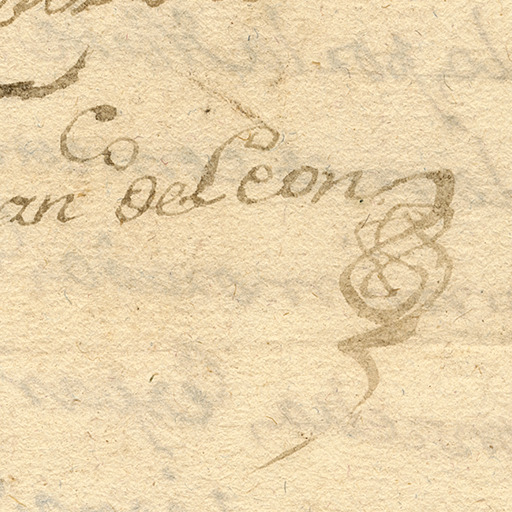 Co
an de Leon